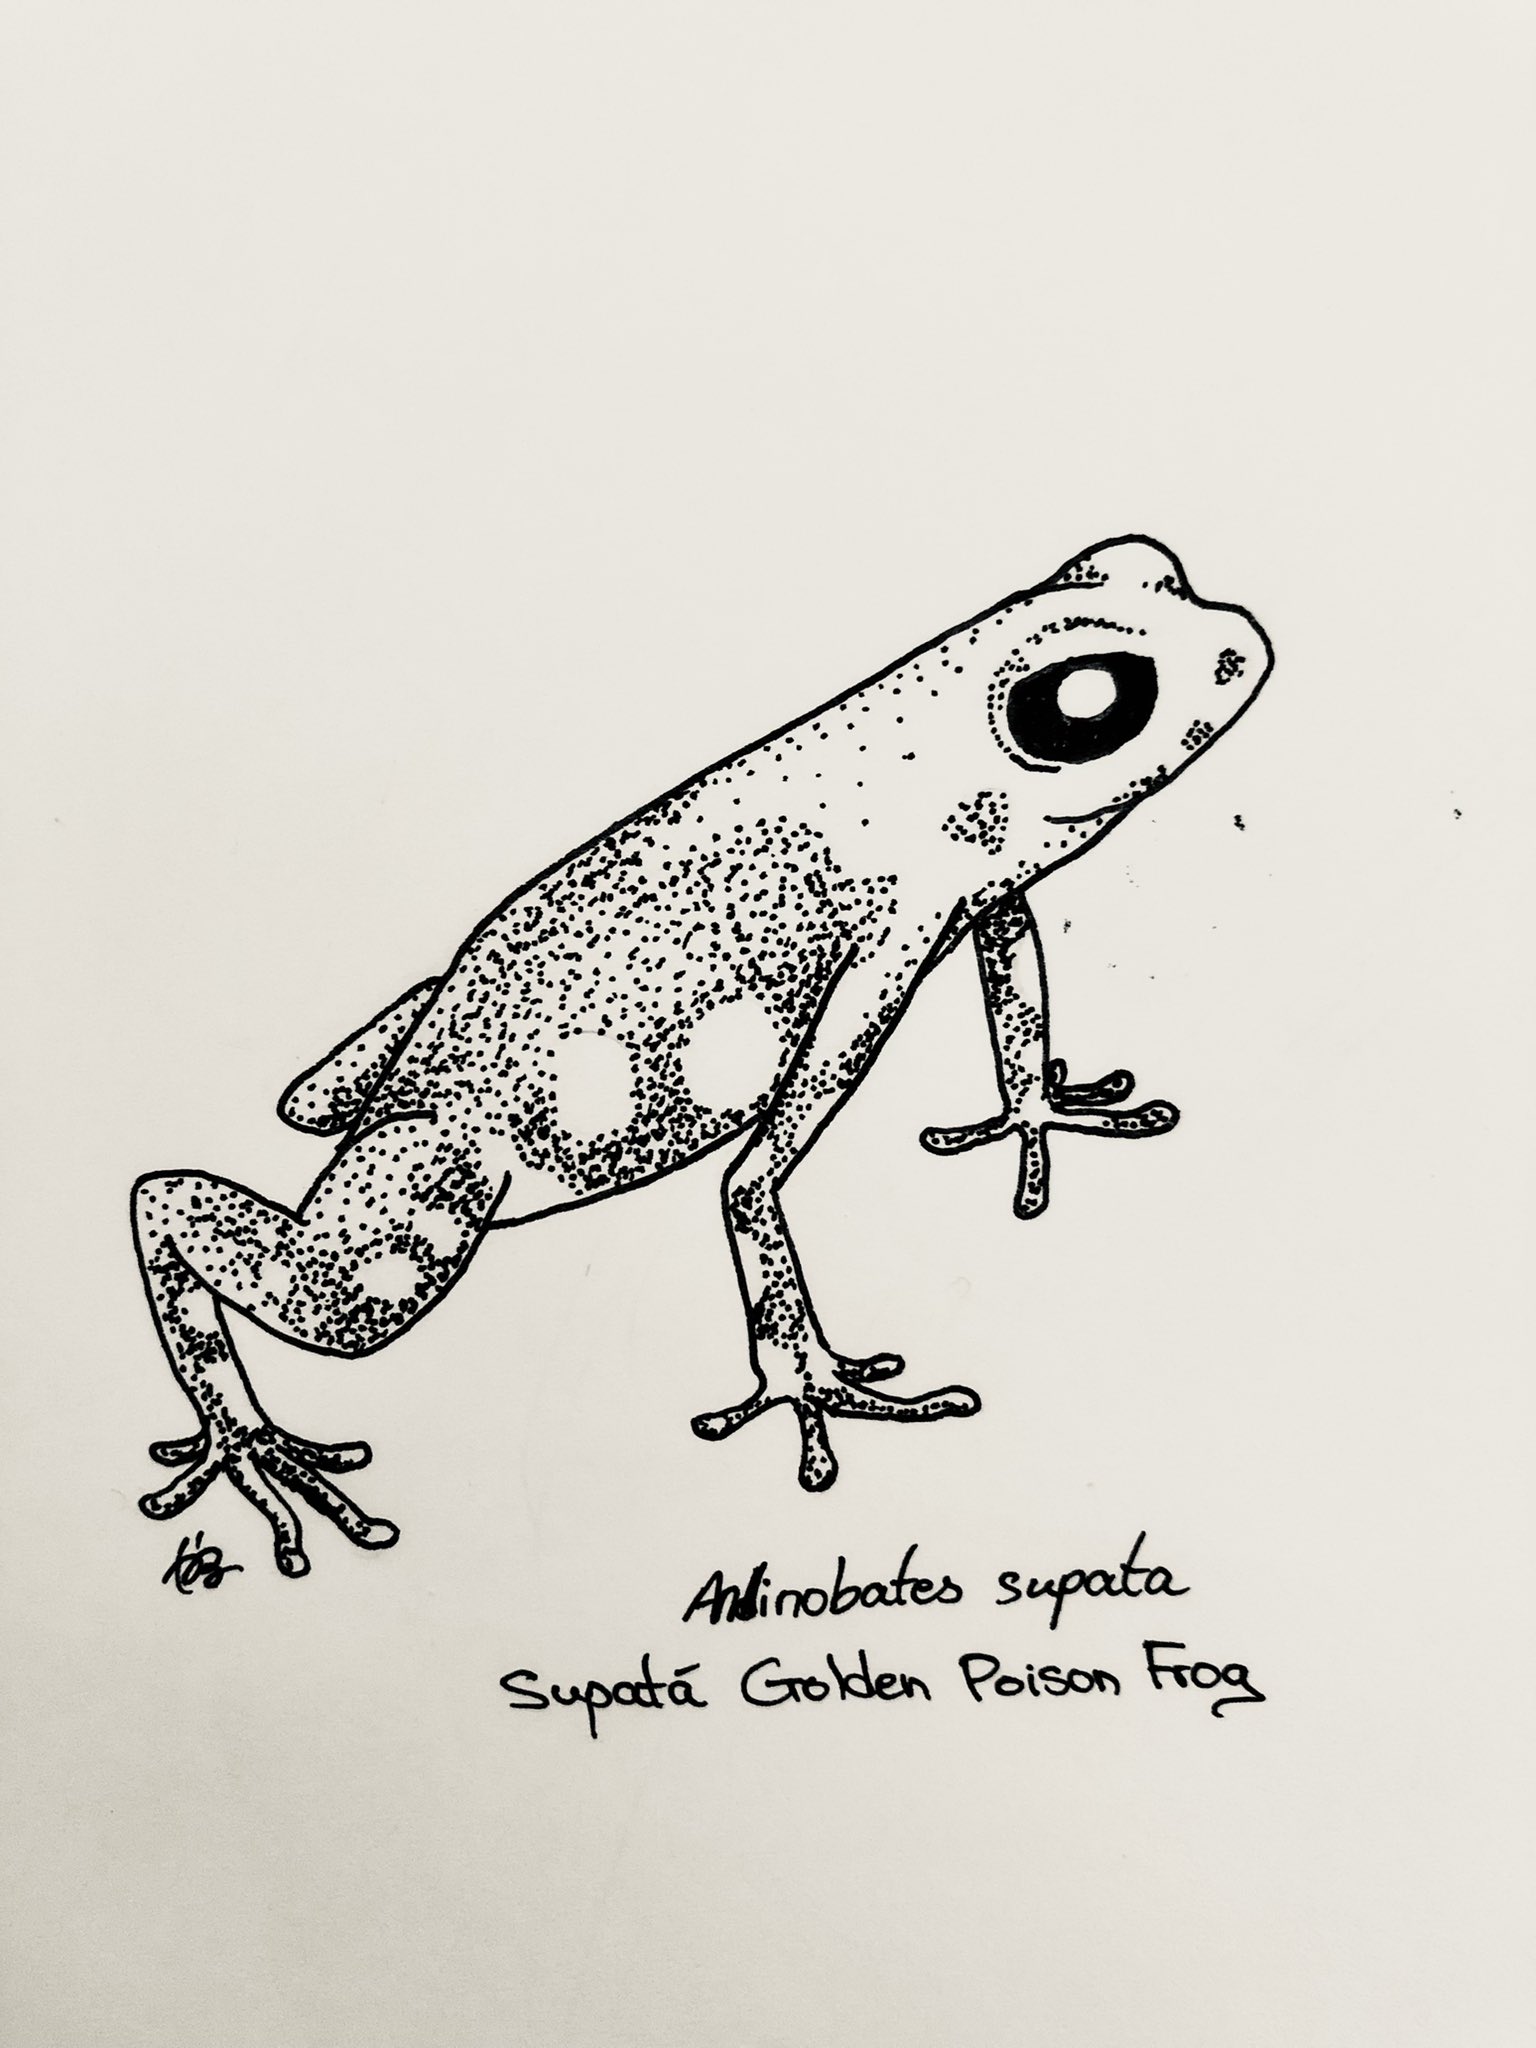 Andinobates supata
Supatá Golden Poison Frog